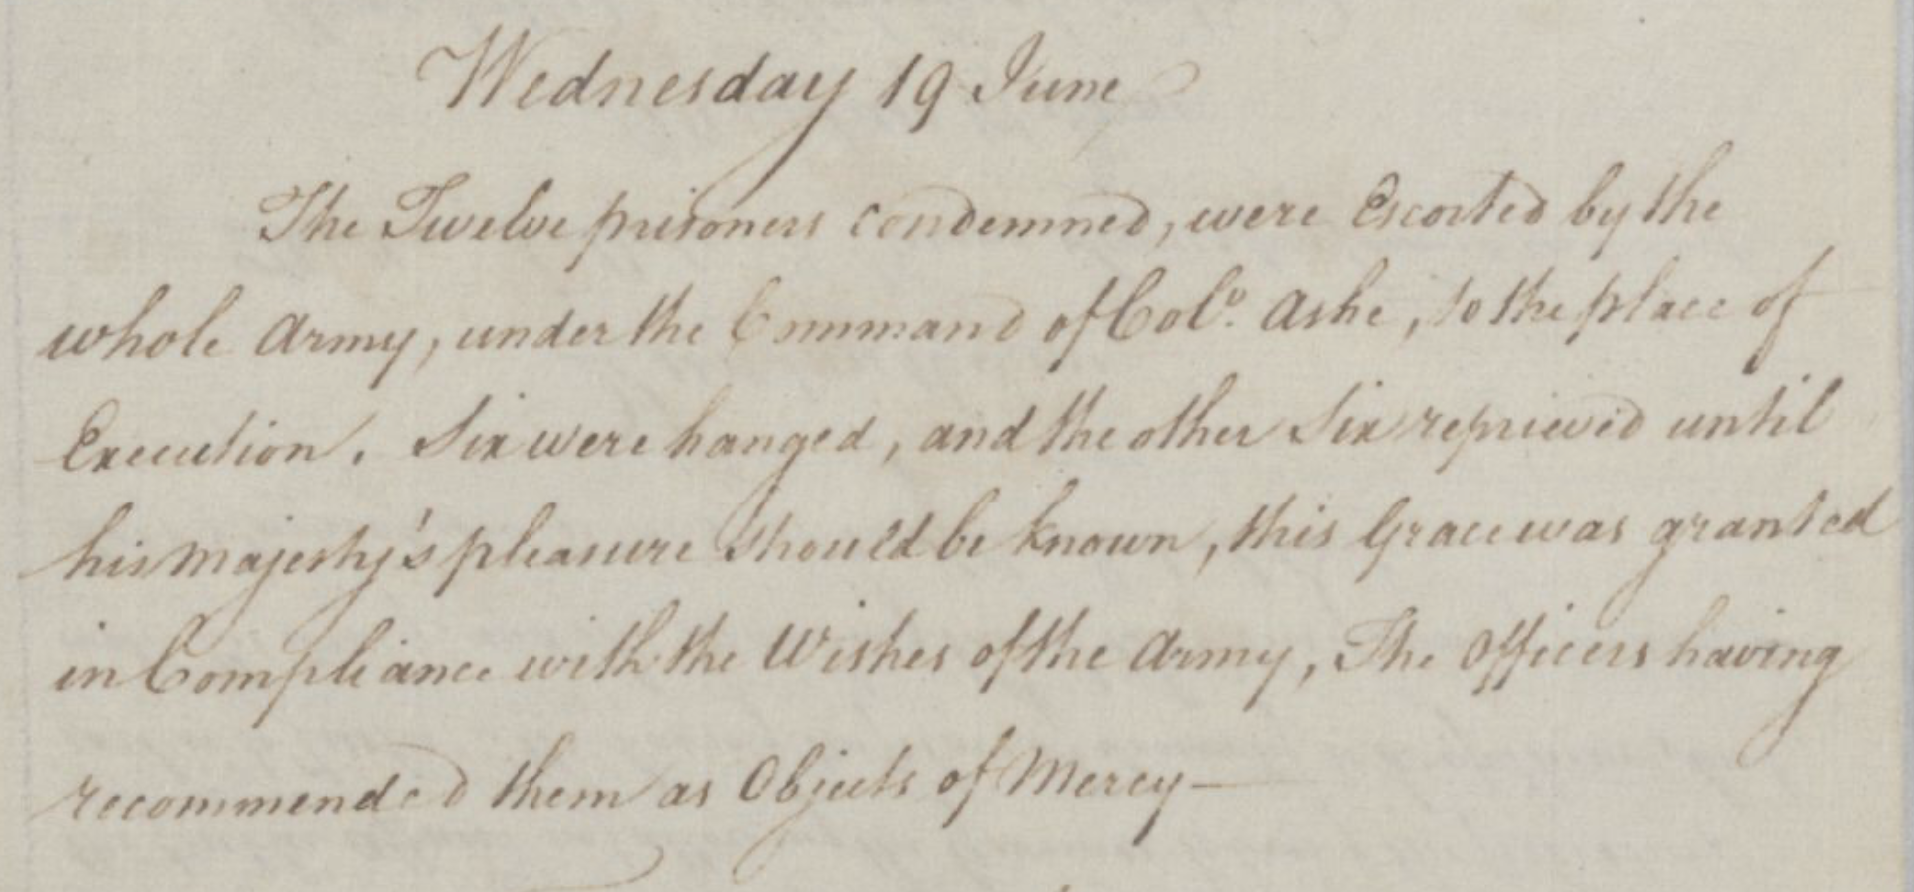 Wednesday 19 June
The Twelve prisoners condemned, were Escorted by the
whole Army, under the Command of Colo. Ashe, to the place of
Execution. Six were hanged, and the other Six reprieved until
his Majesty's pleasure should be known, this Grace was granted
in Compliance with the Wishes of the Army, The Officers having
recommended them as Objects of Mercy—